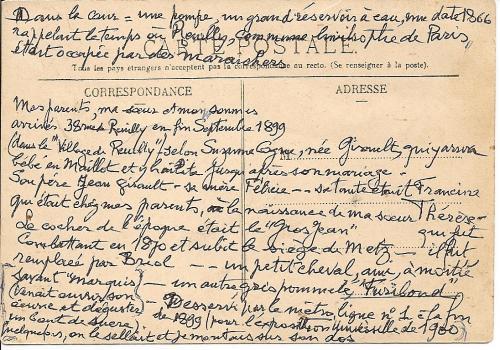 Dans la cour = une pompe, un grand réservoir à eau, une date 1866
rappelant le temps où Reuilly, commune limitrophe de Paris
était occupée par des maraîchers
CARTE POSTALE
Tous les pays étrangers n'acceptent pas la correspondance au recto. (Se renseigner à la poste).
CORRESPONDANCE
ADRESSE
Mes parents, ma sœur et moi sommes
arrivés 38 rue de Reuilly en fin Septembre 1899
(dans le "Village de Reuilly") selon Suzanne Cagne, née Girault, qui y arriva
bébé en Maillot et y habita jusqu'après son mariage -
M
Son père Jean Girault - sa mère Félicie - - sa tante était Francine
qui était chez mes parents, à la naissance de ma sœur Thérèse -
Le cocher de l'époque était le "Gros Jean" qui fut
Combattant en 1870 et subit le siège de Metz - il fut
remplacé par Briol - - un petit cheval, à moitié
savant "marquis" - un autre gris pommelé "Furibond"
(venait ouvrir son
œuvre et déguster
un bout de sucre)
- Desservi par le métro, ligne n° 1 à la fin
de 1899 (pour l'exposition universelle de 1900
quelquefois, on le sellait et je montais sur son dos